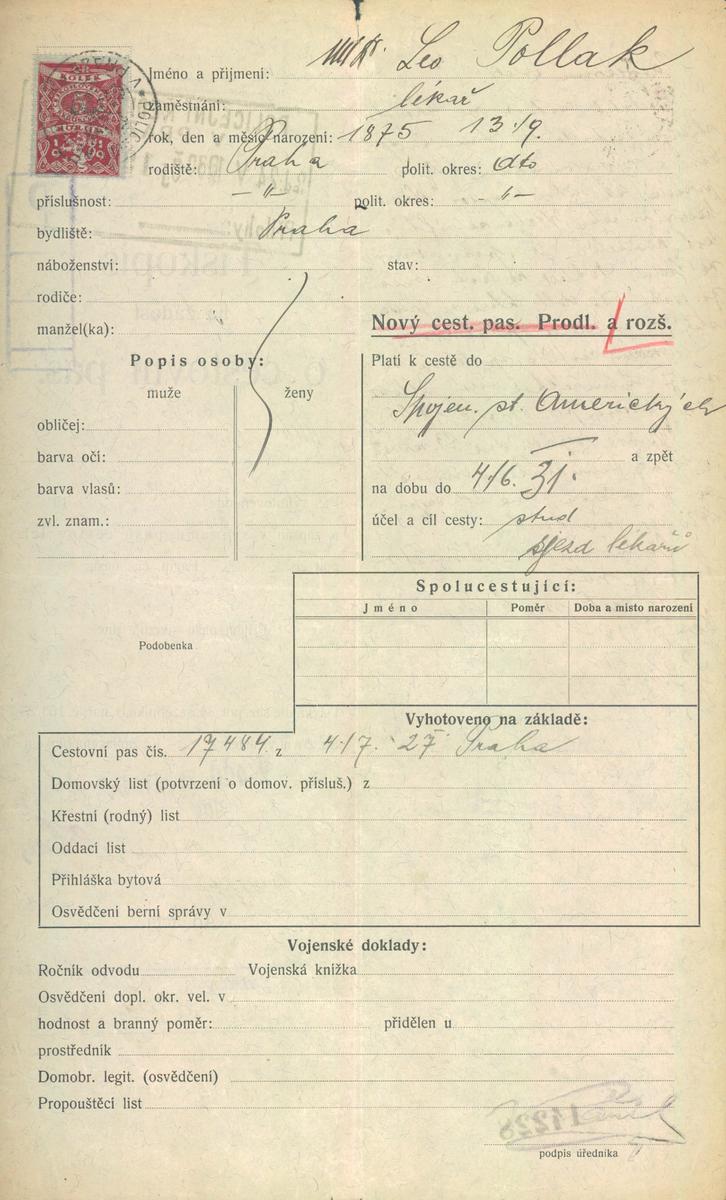 KOLEK
Jméno a přijmení: MUDr. Leo Pollak
zaměstnání: lékař
rok, den a měsíc narození: 1875 13./9.
rodiště: Praha polit. okres: dto
příslušnost: -"- polit. okres: -"-
bydliště: Praha
náboženství: stav:
rodiče:
manžel(ka):
Nový cest. pas. Prodl. a rozš.
Popis osoby:
muže ženy
obličej:
barva očí:
barva vlasů:
zvl. znam.:
Platí k cestě do
Spojen. st. Amerických
a zpět
na dobu do 4/6. 31.
účel a cíl cesty: stud
sjezd lékařů
Spolucestující:
Jméno Poměr Doba a místo narození
Podobenka
Vyhotoveno na základě:
Cestovní pas čís. 17484 z 4./7. 27 Praha
Domovský list (potvrzení o domov. přísluš.) z
Křestní (rodný) list
Oddací list
Přihláška bytová
Osvědčení berní správy v
Vojenské doklady:
Ročník odvodu Vojenská knížka
Osvědčení dopl. okr. vel. v
hodnost a branný poměr: přidělen u
prostředník
Domobr. legit. (osvědčení)
Propouštěcí list
podpis úředníka